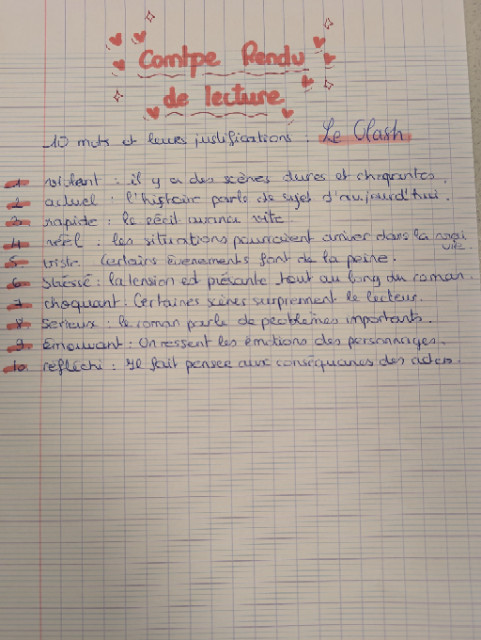 Comtpe Rendu
de lecture
10 mots et leurs justifications : Le Clash
1 violent : il y a des scènes dures et choquantes.
2 actuel : l'histoire parle de sujet d'aujourd'hui.
3 rapide : le récit avance vite
4 réel : les situations pourraient arriver dans la vrai vie.
5 triste. Certains évenements font de la peine.
6 stressé : la tension est présente tout au long du roman.
7 choquant. Certaines scènes surprennent le lecteur.
8 serieux : le roman parle de problèmes importants.
9 émouvant : On ressent les émotions des personnages.
10 réfléchi : Il fait penser aux conséquences des actes.